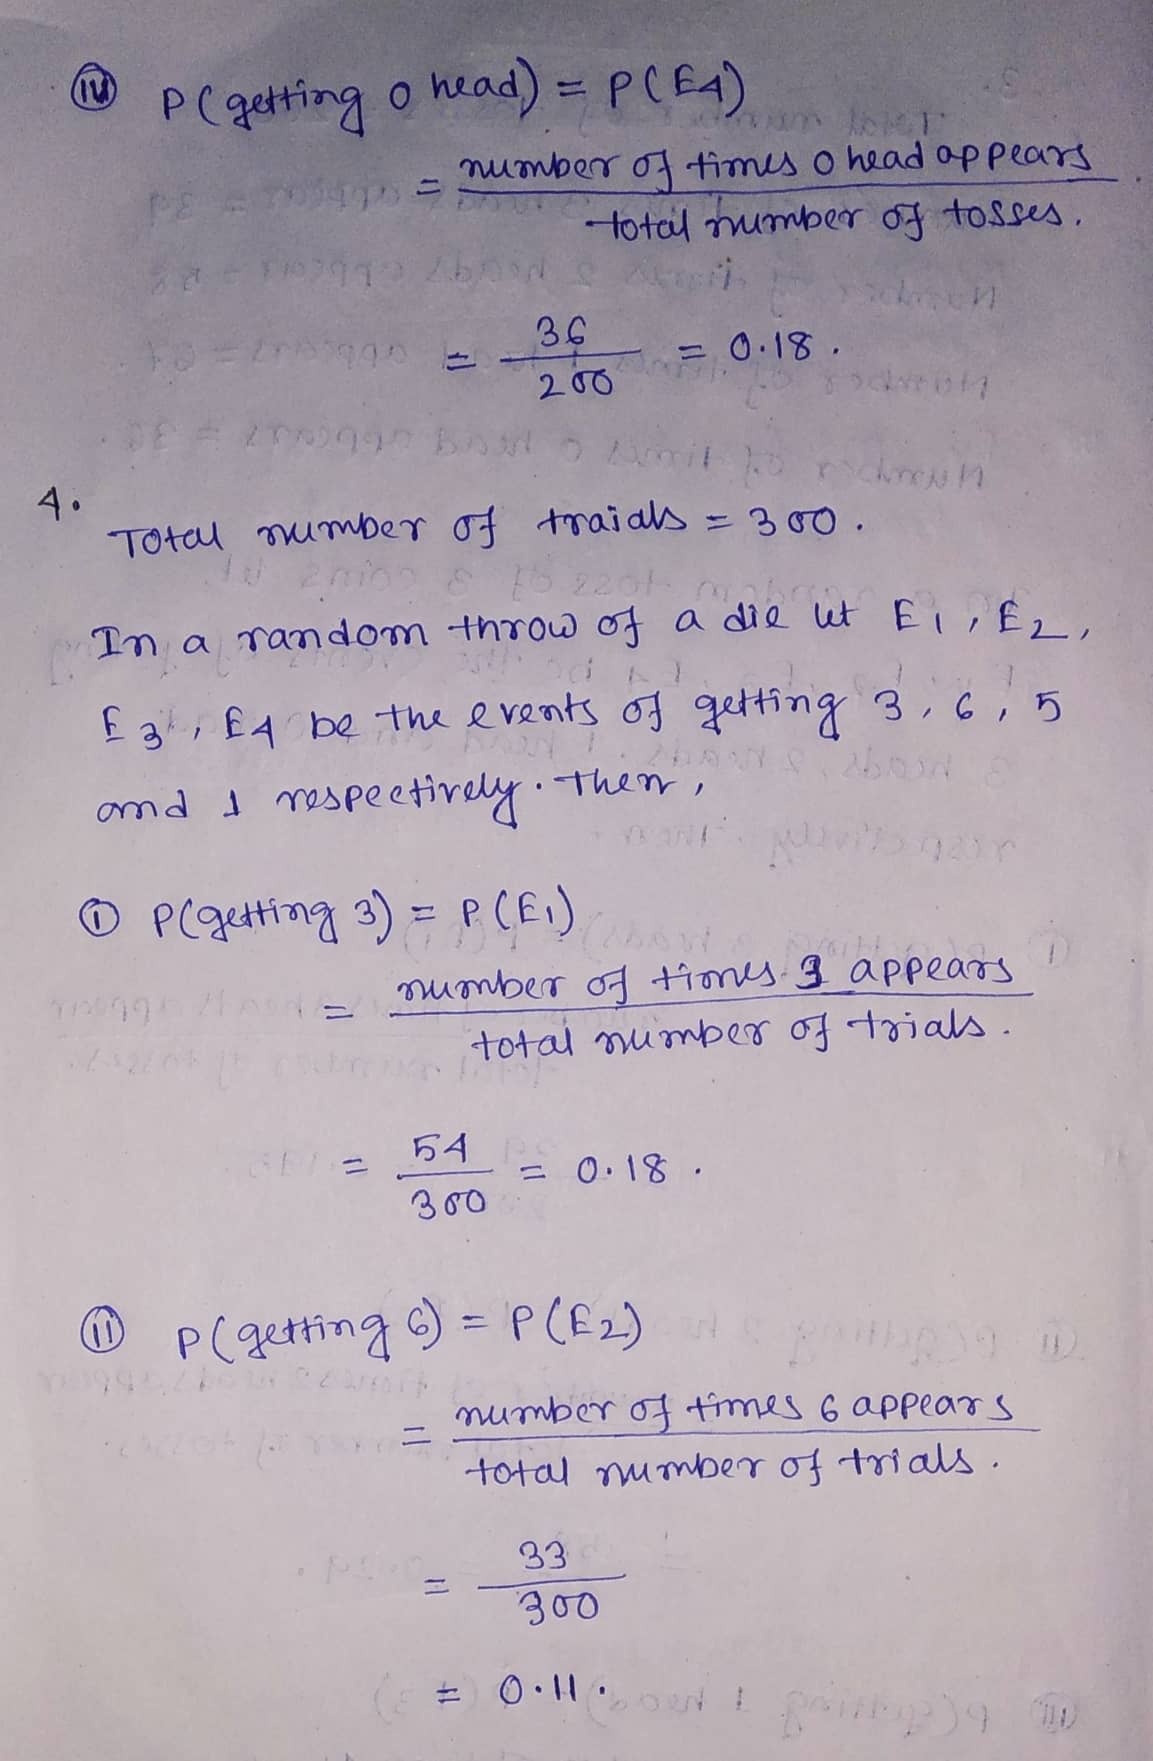 (iv) P(getting 0 head) = P(E4)
= number of times 0 head appears
total number of tosses.
= 36
200
= 0.18.
4.
Total number of traials = 300.
In a random throw of a die let E1, E2,
E3, E4 be the events of getting 3, 6, 5
and 1 respectively. Then,
(i) P(getting 3) = P(E1)
= number of times 3 appears
total number of trials.
= 54
300
= 0.18.
(ii) P(getting 6) = P(E2)
= number of times 6 appears
total number of trials.
= 33
300
= 0.11.